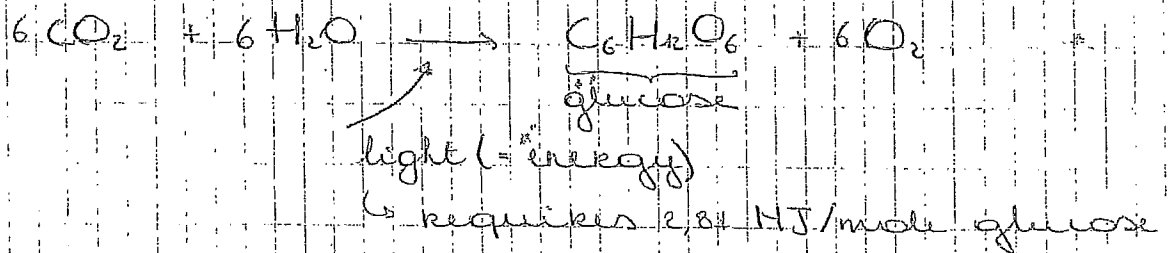 6 CO₂ + 6 H₂O → C₆H₁₂O₆ + 6 O₂
glucose
light (= energy)
↳ requires 2,81 MJ/mole glucose